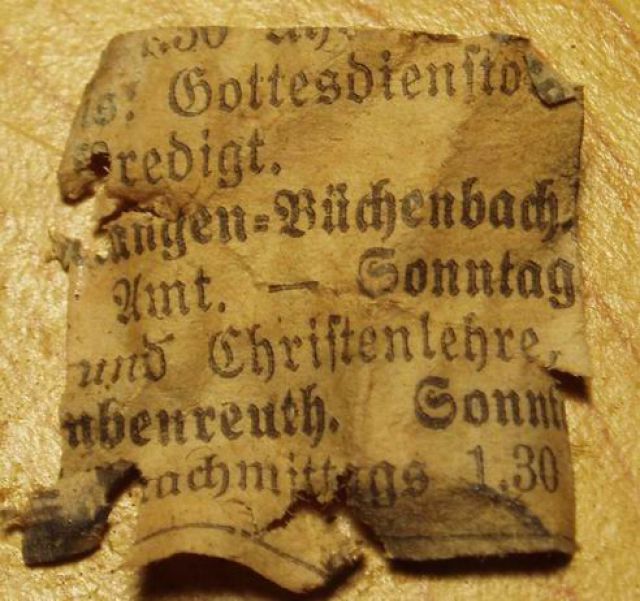 .30 Uhr
ls: Gottesdiensto
Predigt.
angen=Büchenbach.
Amt. — Sonntag
und Christenlehre,
ubenreuth. Sonnt
nachmittags 1.30